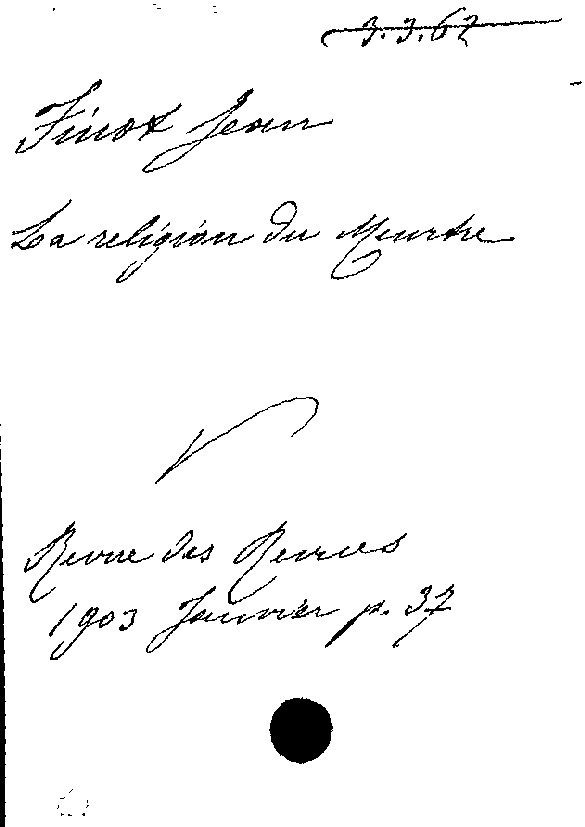 3.3.62
Finot Jean
La religion du Meurtre
Revue des Revues
1903 Janvier p. 37